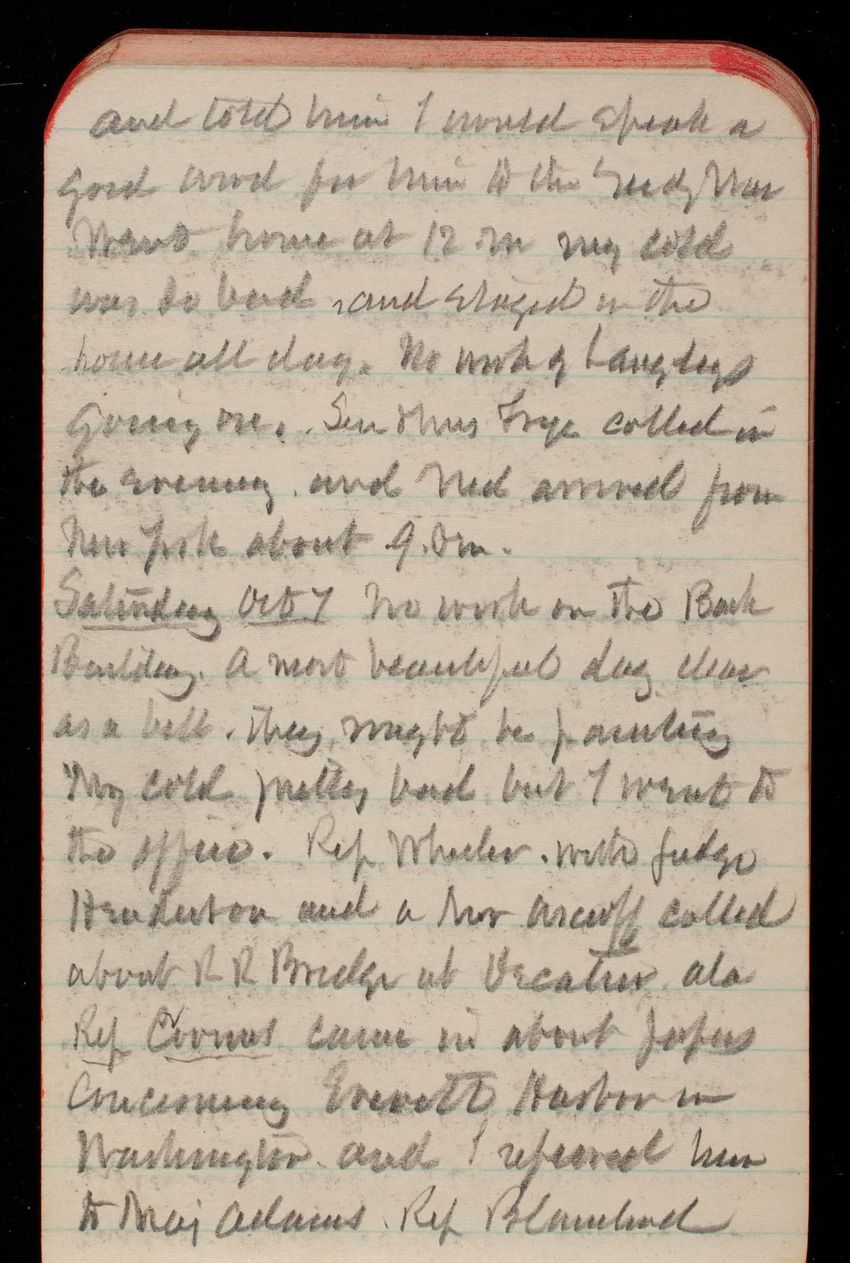 and told him I would speak a
good word for him to the Secy War
Went home at 12 m my cold
was so bad, and stayed in the
house all day. No work of Langleys
going on. Sen Thos Frye called in
the evening. and Ned arrived from
New York about 9. Pm.
Saturday Oct 7 No work on the Back
Building. A most beautiful day clear
as a bell. They might be painting
My cold pretty bad but I went to
the office. Rep Wheeler. with Judge
Henderson and a Mr called
about R R Bridge at Decatur ala
Rep came in about papers
Concerning Everett Harbor in
Washington. and I referred him
to Maj Adams. Rep Blanchard